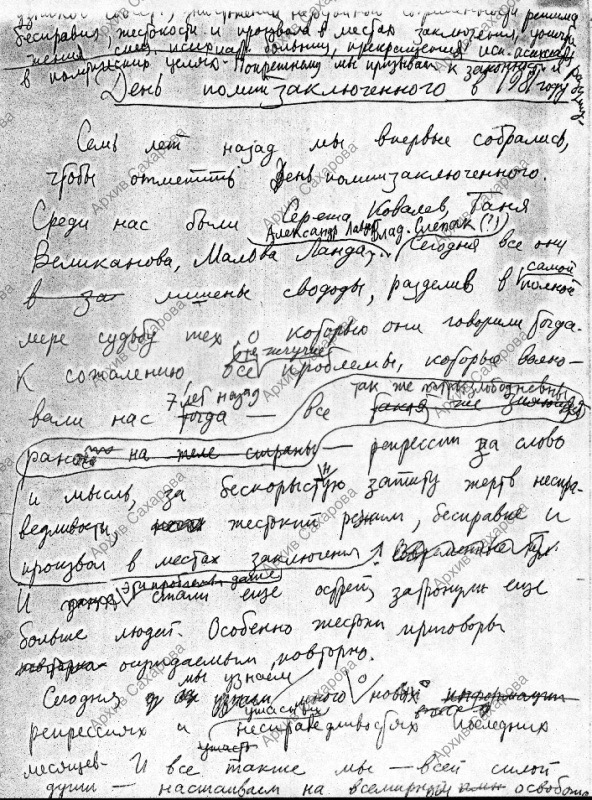 бесправия, жестокости и произвола в местах заключения,
в политических целях. По-прежнему мы призываем к законности и
День политзаключенного в 1981 году
Семь лет назад мы впервые собрались,
чтобы отметить День политзаключенного.
Среди нас были Сережа Ковалев, Таня
Александр Лавут Влад. Слепак (?!)
Великанова, Мальва Ланда... Сегодня все они
в за лишены свободы, разделив в самой полной
мере судьбу тех о которых они говорили тогда.
К сожалению все проблемы, которые волно-
7 лет назад так же злободневны
вали нас тогда — все такая же зияющая
рана на теле страны — репрессии за слово
и мысль, за бескорыстную защиту жертв неспра-
ведливости, жестокий режим, бесправие и
произвол в местах заключения.
Эти проблемы даже
И стали еще острей, затронули еще
больше людей. Особенно жестоки приговоры
повторно осуждаемым повторно.
мы узнаем
Сегодня много о новых информации
ужасных
репрессиях и несправедливостях последних
месяцев. И все также мы — всей силой
души — настаиваем на всемирной
Архив Сахарова